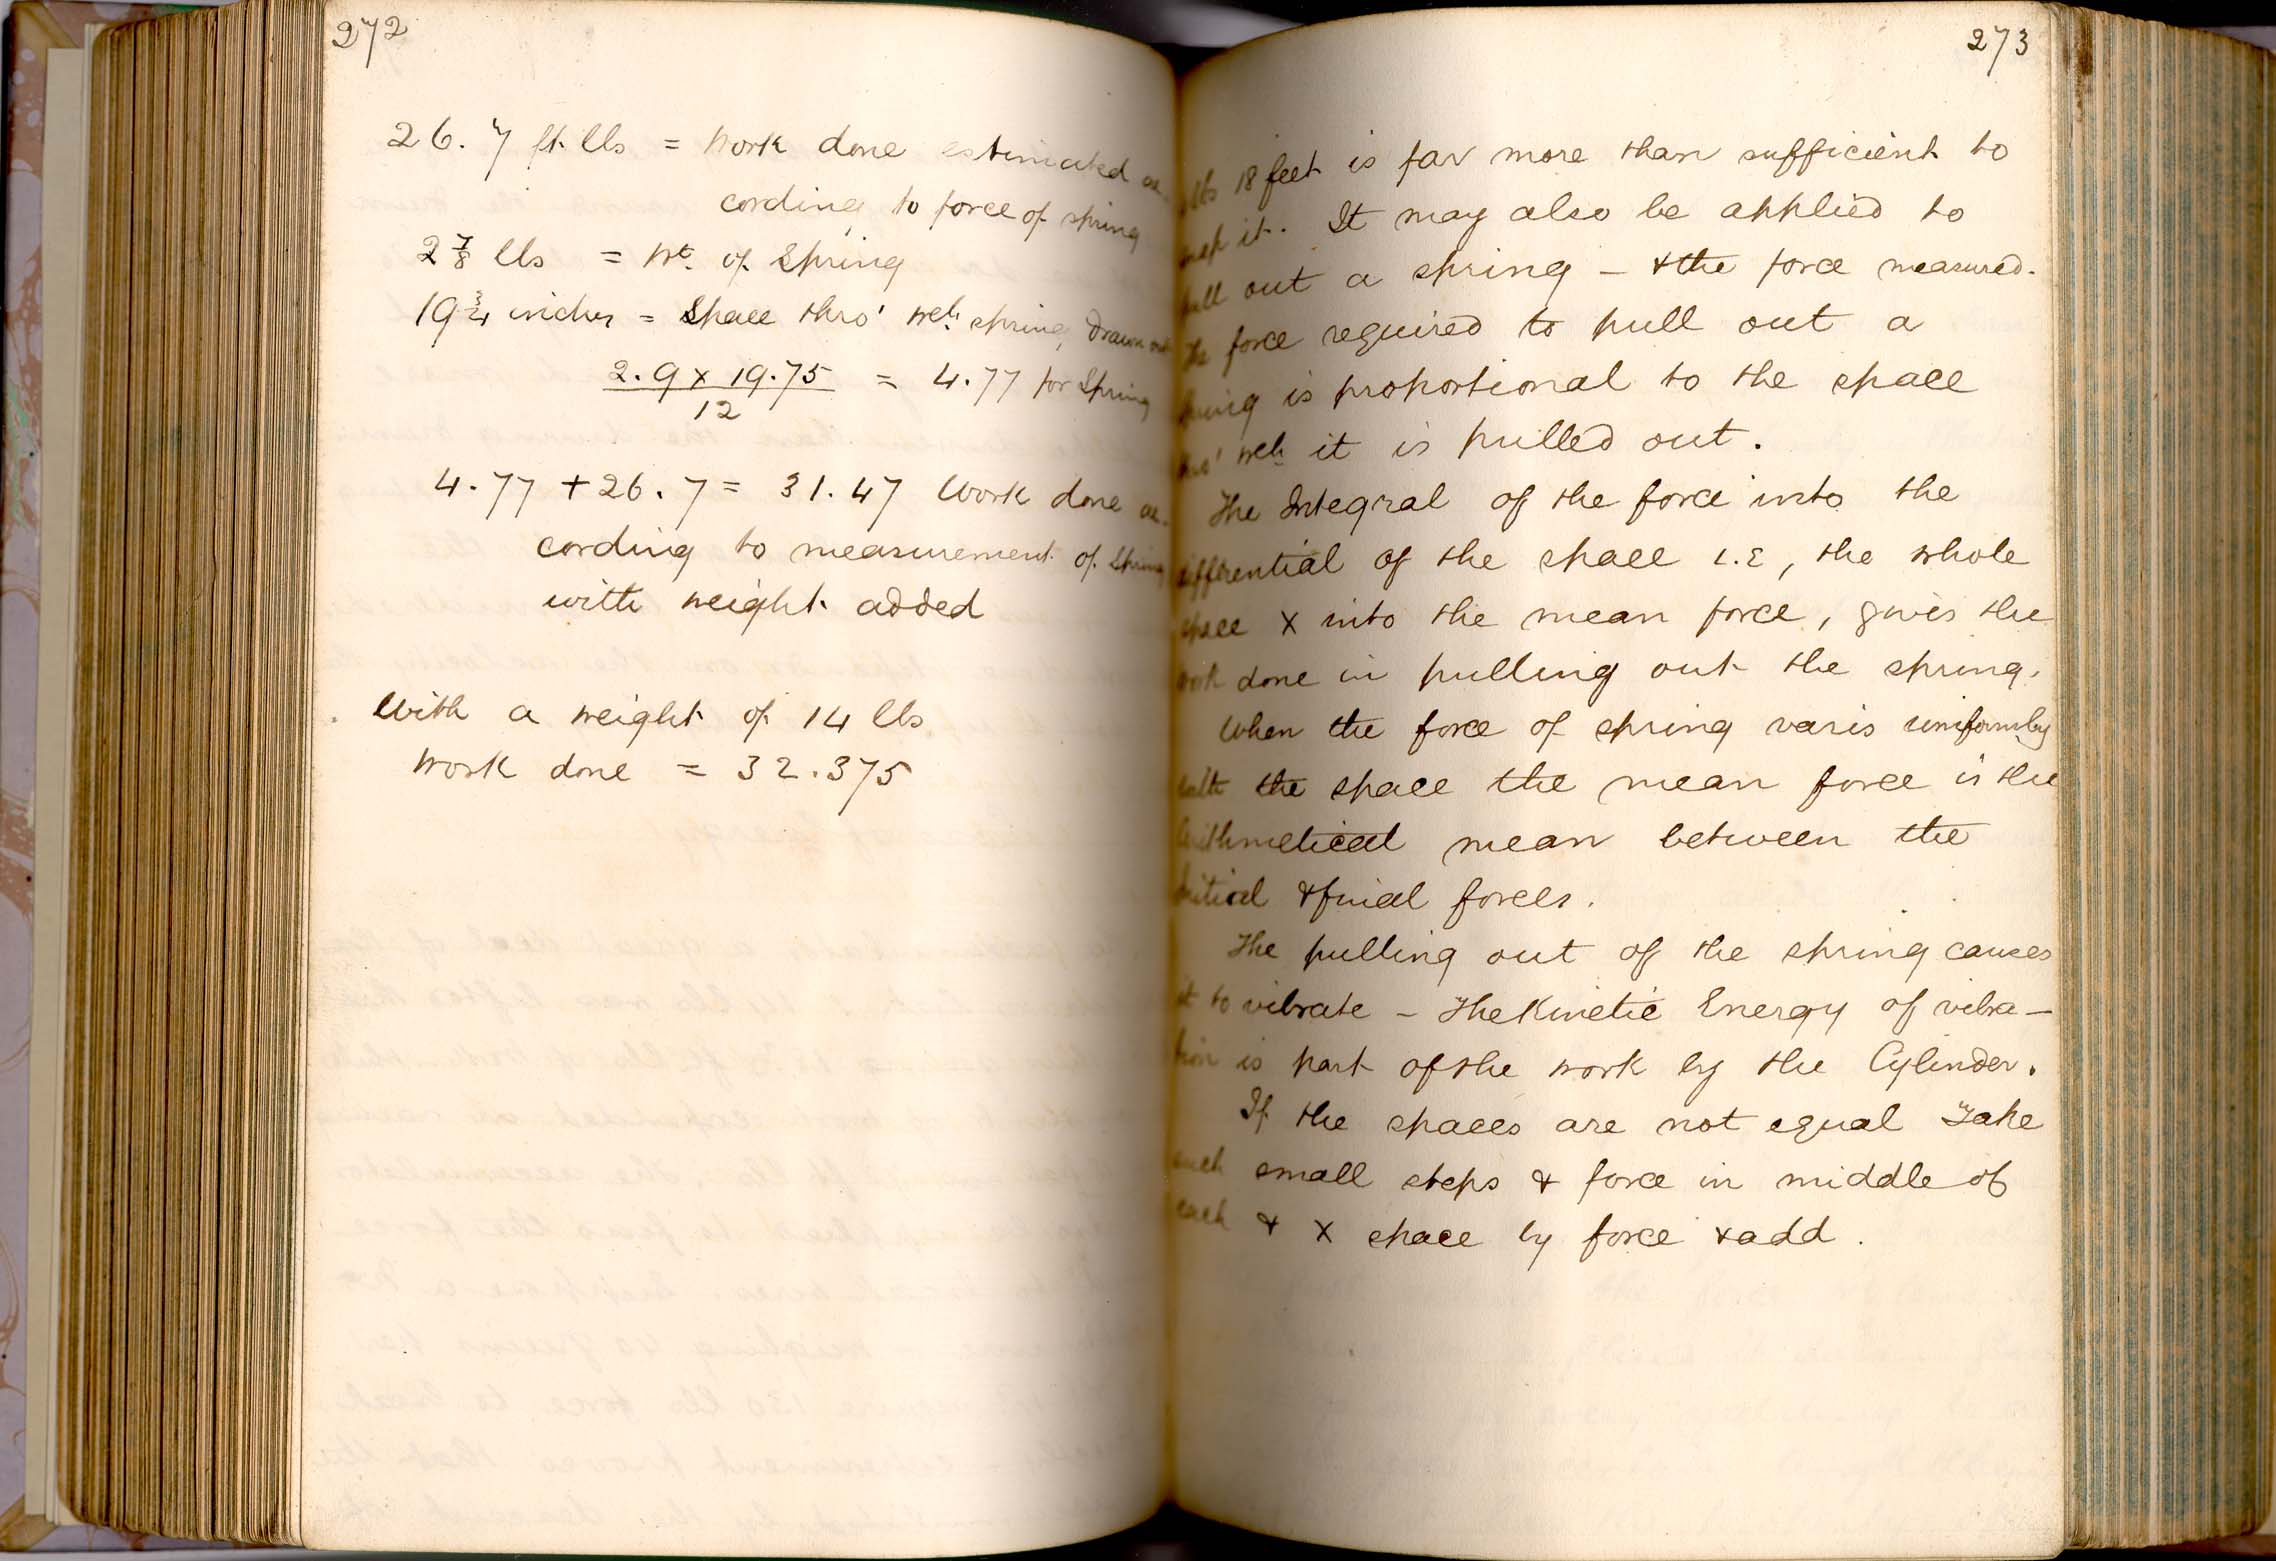 272
26.7 ft. lbs = Work done estimated ac-
cording to force of spring
2 7/8 lbs = Wt. of Spring
19 3/4 inches = Space thro' wch spring drawn out
2.9 x 19.75 = 4.77 for Spring
12
4.77 + 26.7 = 31.47 Work done ac-
cording to measurement of Spring
with weight added
With a weight of 14 lbs
Work done = 32.375
273
lbs 18 feet is far more than sufficient to
it. It may also be applied to
pull out a spring – & the force measured.
The force required to pull out a
spring is proportional to the space
thro' wch it is pulled out.
The Integral of the force into the
differential of the space i.e, the whole
space X into the mean force, gives the
work done in pulling out the spring.
When the force of spring varis uniformly
with the space the mean force is the
Arithmetical mean between the
initial & final forces.
The pulling out of the spring causes
it to vibrate – The Kinetic Energy of vibra–
tion is part of the work by the Cylinder.
If the spaces are not equal Take
such small steps & force in middle of
each & X space by force & add.